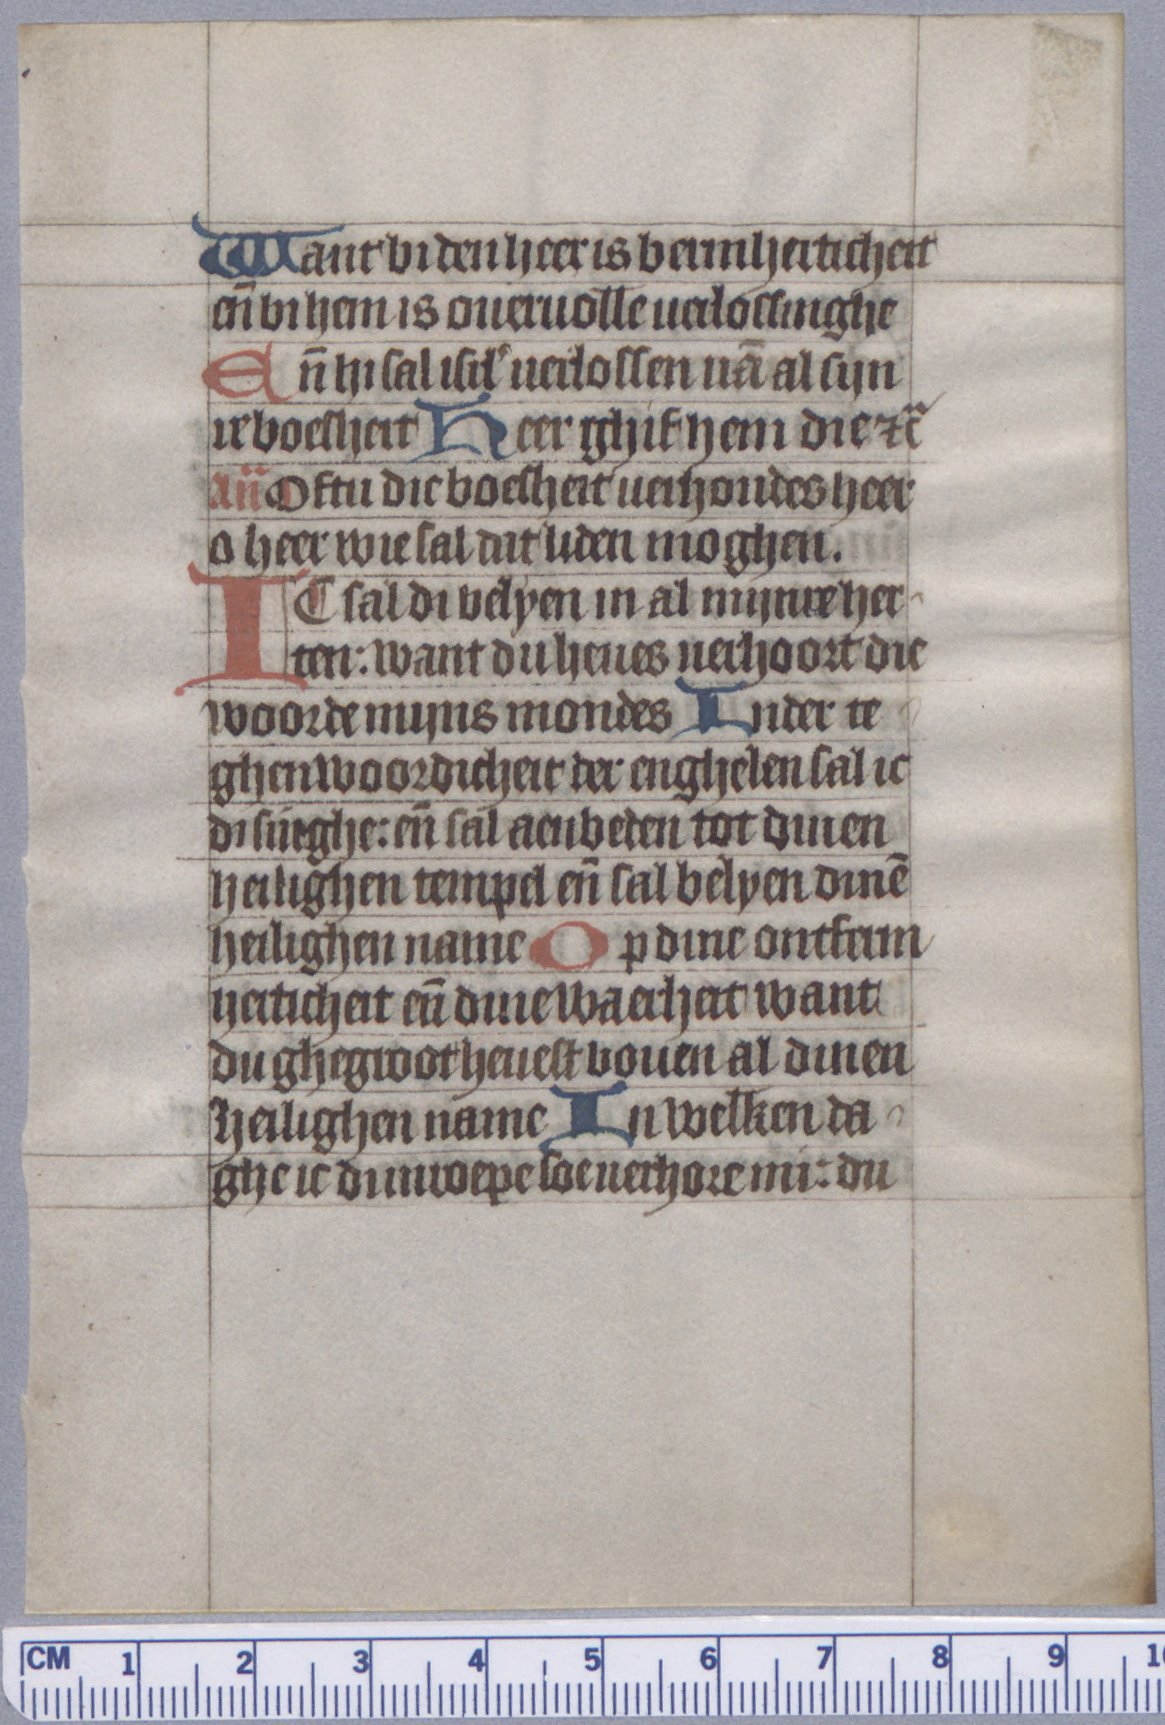 Want bi den heer is bermherticheit
en̄ bi hem is overvolle verlossinghe
En̄ hi sal isrl' verlossen vā al sijn
re boesheit Heer ghif hem die ⁊c̄
an̄ Oftu die boesheit verhoudes heer
o heer wie sal dat liden moghen.
IC sal di belyen in al mijnre her
ten: want du heves verhoort die
woorde mijns mondes In der te
ghenwoordicheit der enghelen sal ic
di singhe: en̄ sal aenbeden tot dinen
heilighen tempel en̄ sal belyen dinē
heilighen name Op dine ontferm
herticheit en̄ dine waerheit want
du ghegroot hevest boven al dinen
heilighen name In welken da
ghe ic di inroepe soe verhore mi: du
CM 1 2 3 4 5 6 7 8 9 10